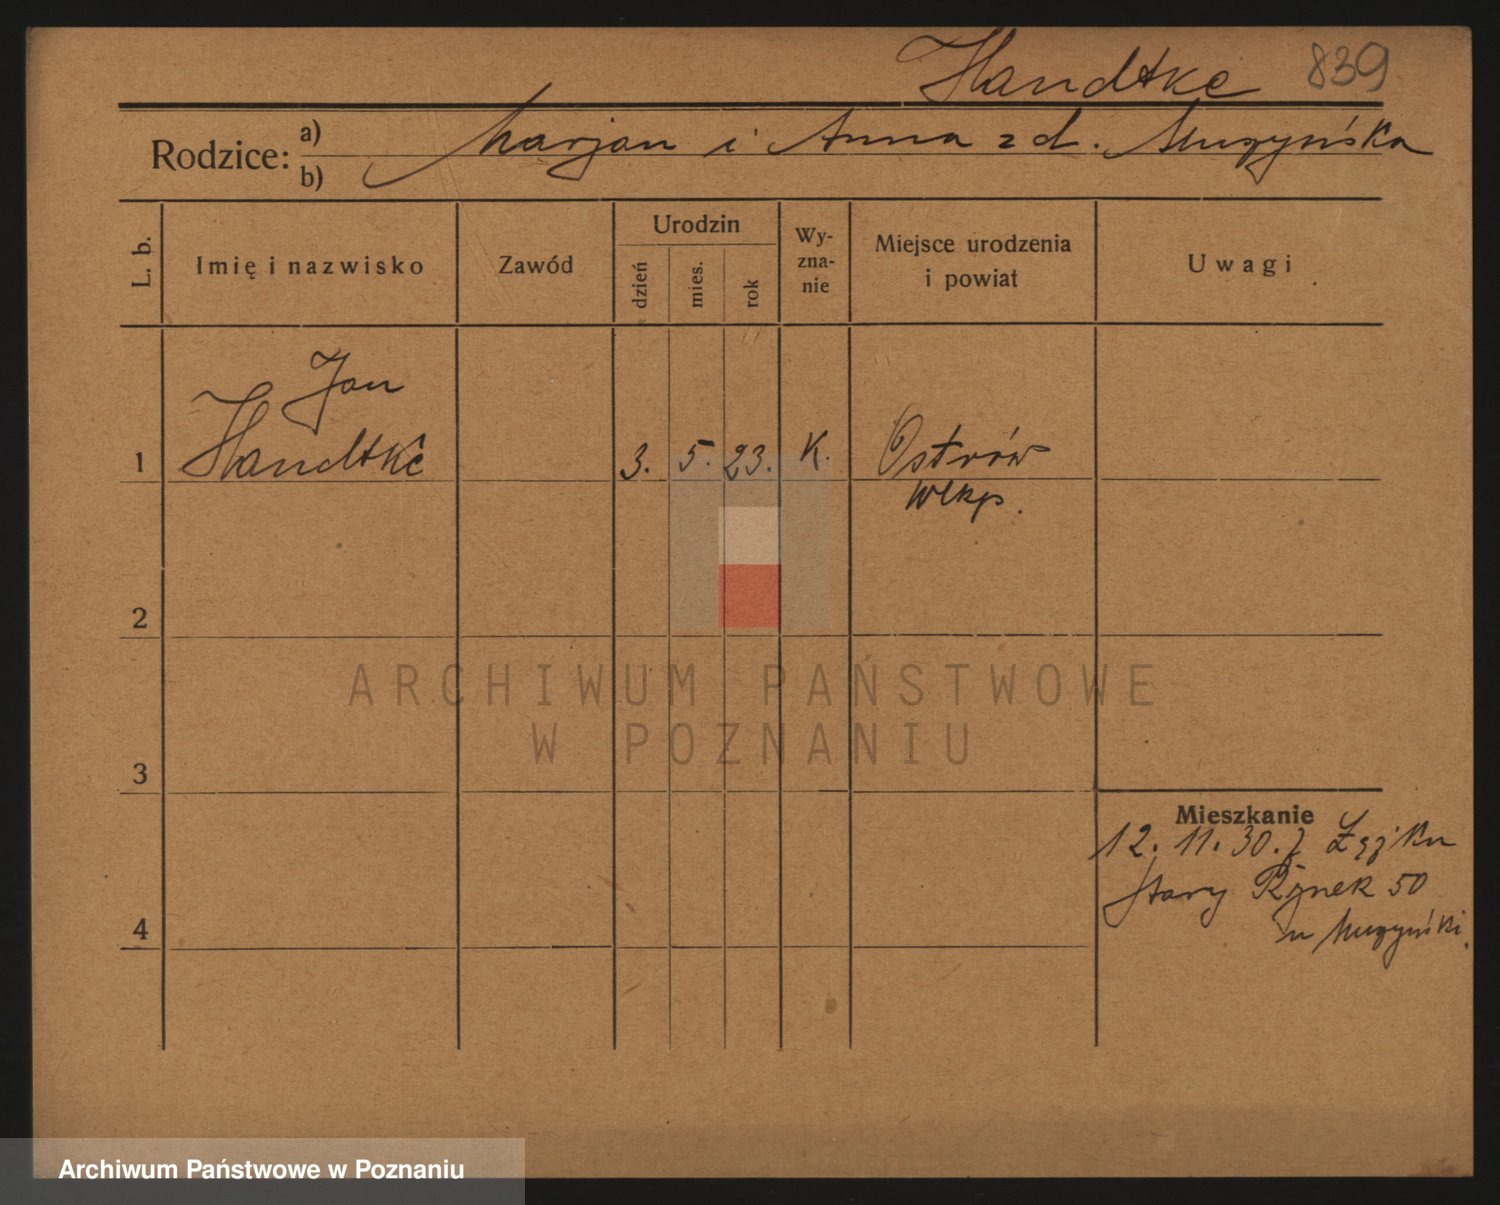 Handtke 839
Rodzice: a) b) Marjan i Anna z d. Muszyńska
L. b.
Imię i nazwisko
Zawód
Urodzin
dzień
mies.
rok
Wy-
zna-
nie
Miejsce urodzenia
i powiat
Uwagi
Jan
1 Handtke 3. 5. 23. K. Ostrów
wlkp.
2
ARCHIWUM PAŃSTWOWE
W POZNANIU
3
Mieszkanie
12. 11. 30. z
Stary Rynek 50
u Muszyński.
4
Archiwum Państwowe w Poznaniu